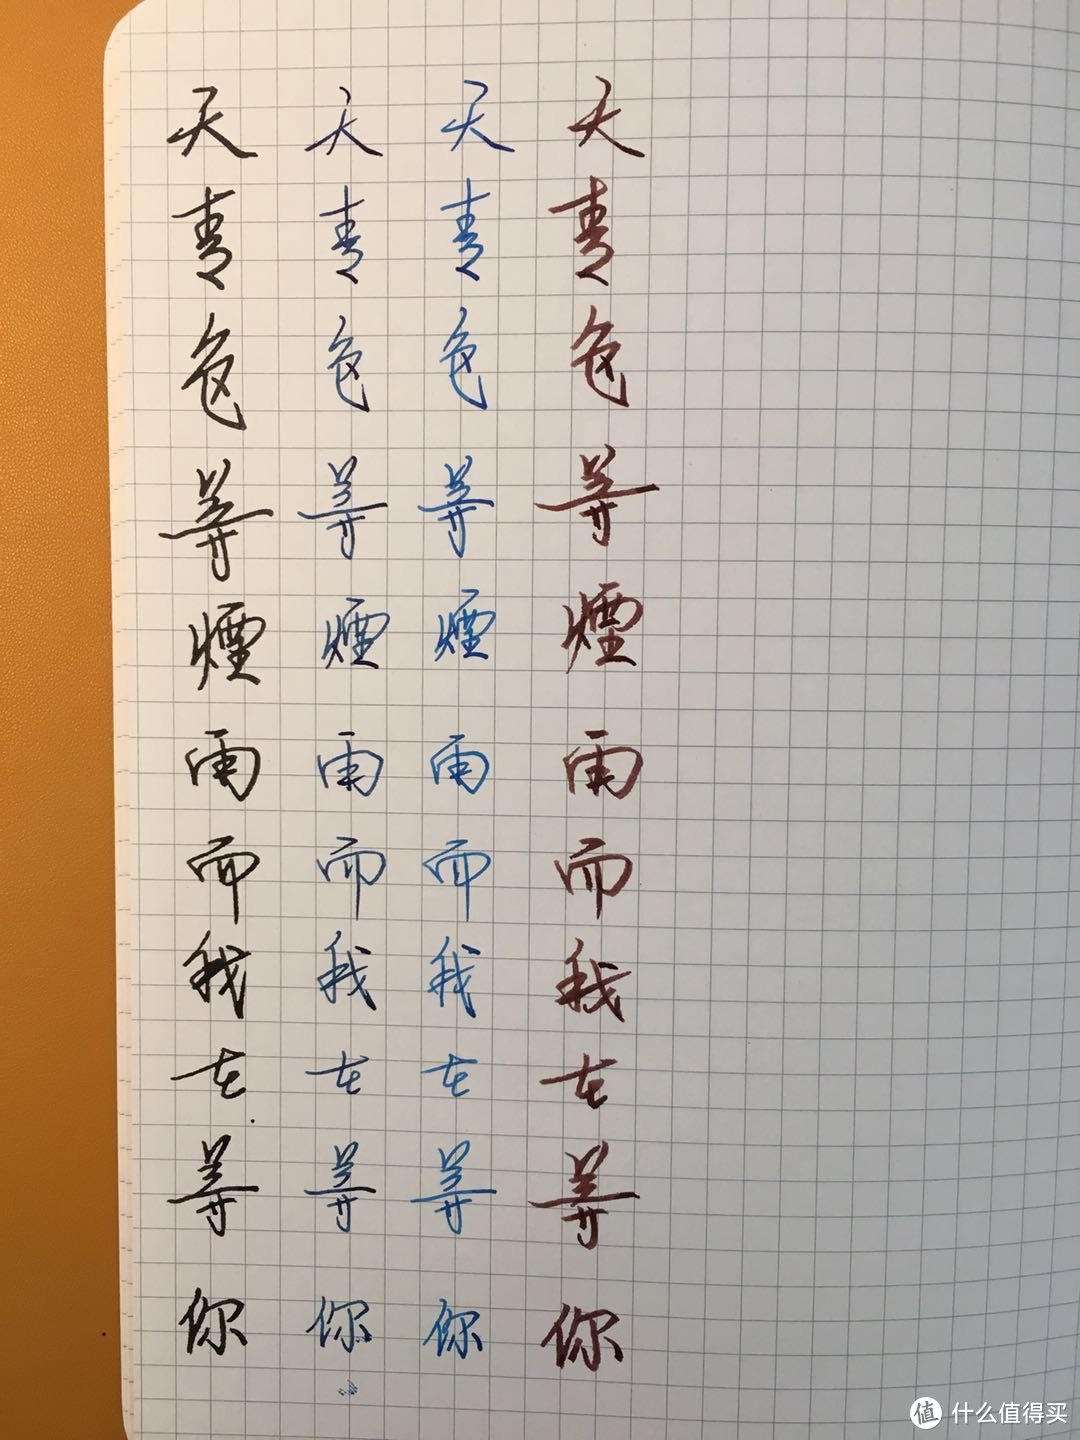 天青色等煙雨而我在等你
天青色等煙雨而我在等你
天青色等煙雨而我在等你
天青色等煙雨而我在等你
值 什么值得买